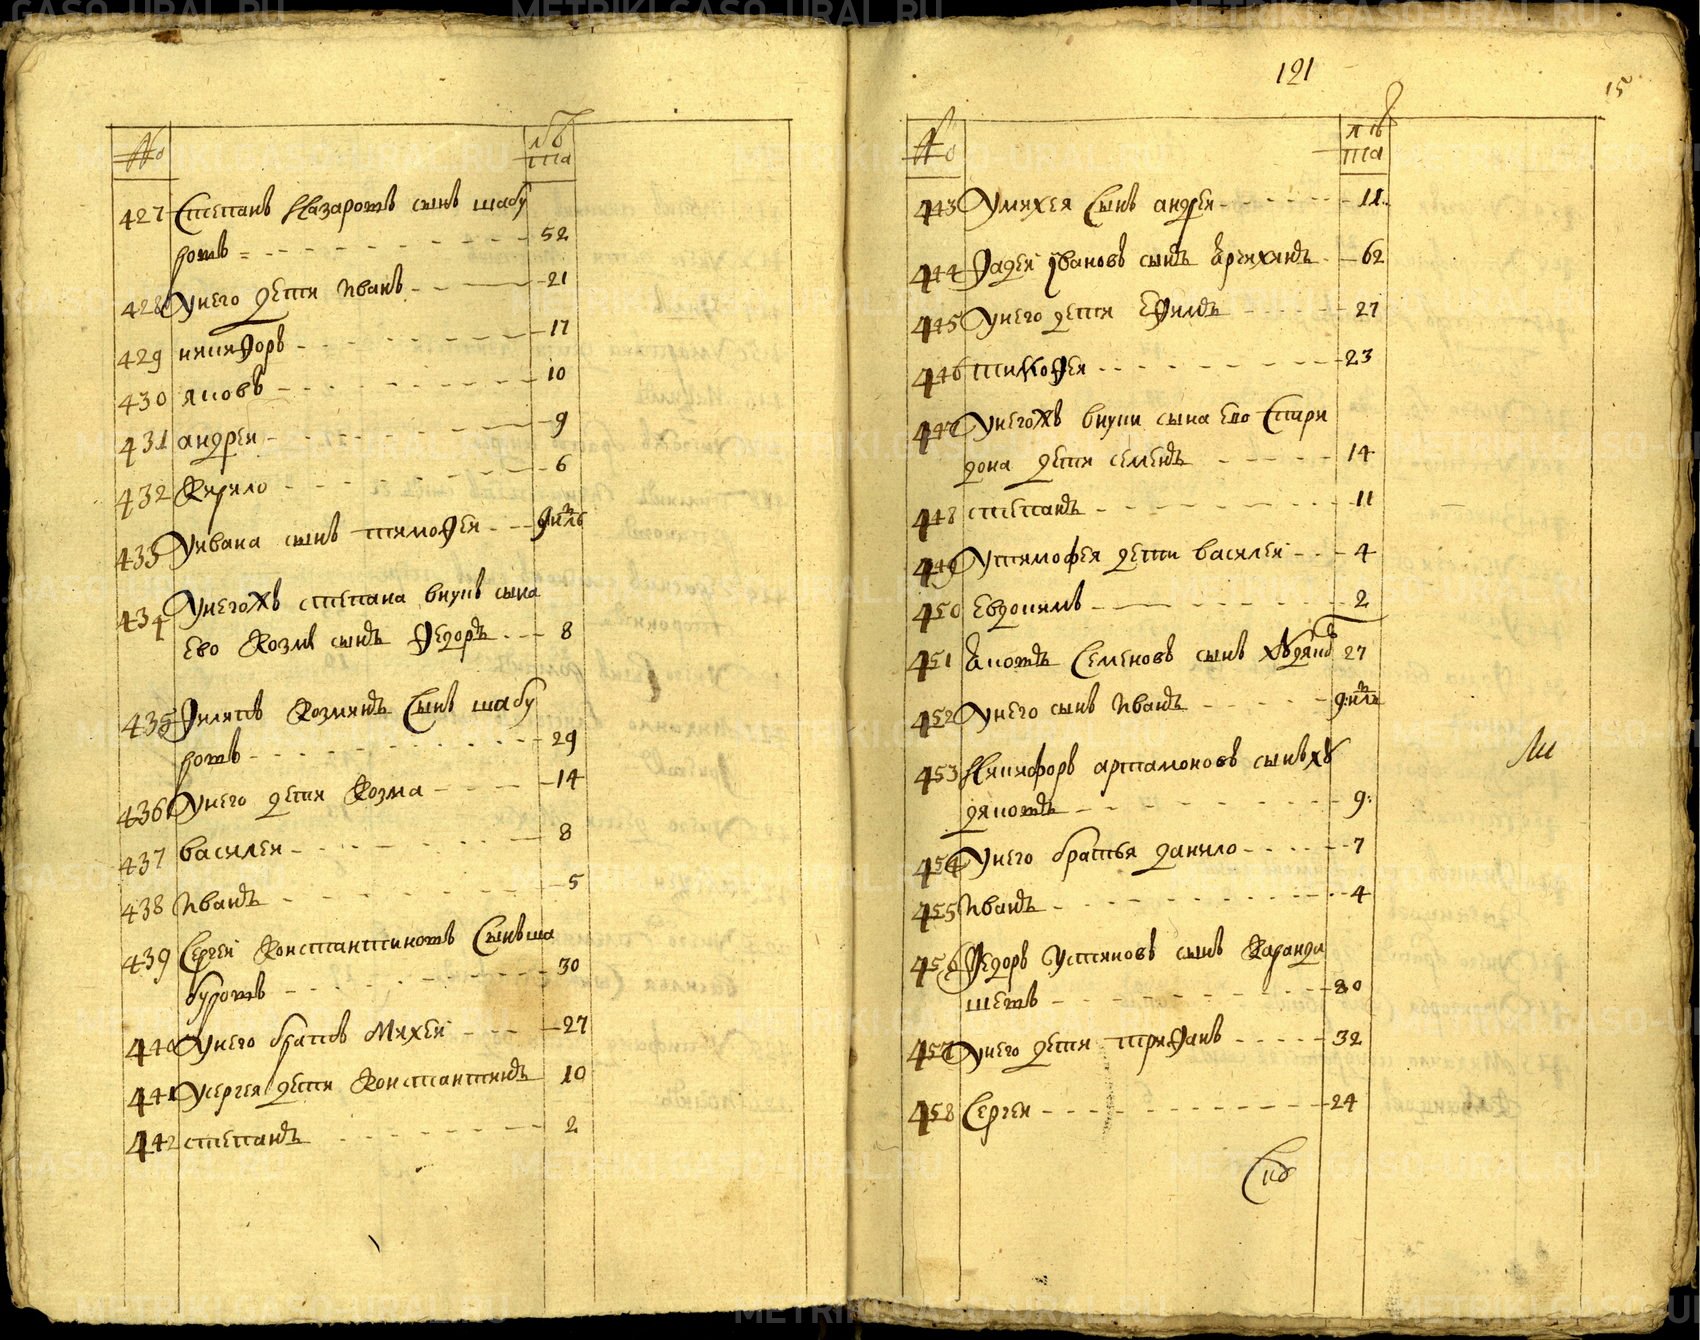 № лѣ
та
427 Степанъ Назаровъ сынъ шабу
ровъ 52
428 У него дети Иванъ 21
429 никифоръ 17
430 яковъ 10
431 андреи 9
432 Кирило 6
433 У ивана сынъ тимофеи днль
434 У негожъ степана внукъ сына
ево Козмы сынъ Федоръ 8
435 Филипъ Козминъ Сынъ шабу
ровъ 29
436 У него дети Козма 14
437 василеи 8
438 Иванъ 5
439 Сергеи Константиновъ Сынъ ша
буровъ 30
440 У него братъ Михеи 27
441 У сергея дети Константинъ 10
442 степанъ 2
121
15
№ лѣ
та
443 У михея Сынъ андреи 11
444 Фадеи Ивановъ сынъ 62
445 У него дети Ефимъ 27
446 тимофеи 23
447 У негожъ внуки сына Ево Спири
дона дети семенъ 14
448 степанъ 11
449 У тимофея дети василеи 4
450 Евдокимъ 2
451 Семеновъ сынъ 27
452 У него сынъ Иванъ
453 Никифоръ артамоновъ сынъ ху
дяковъ 9
454 У него братья данило 7
455 Иванъ 4
456 Федоръ Устиновъ сынъ Каранда
шевъ 80
457 У него дети трифанъ 32
458 Сергеи 24